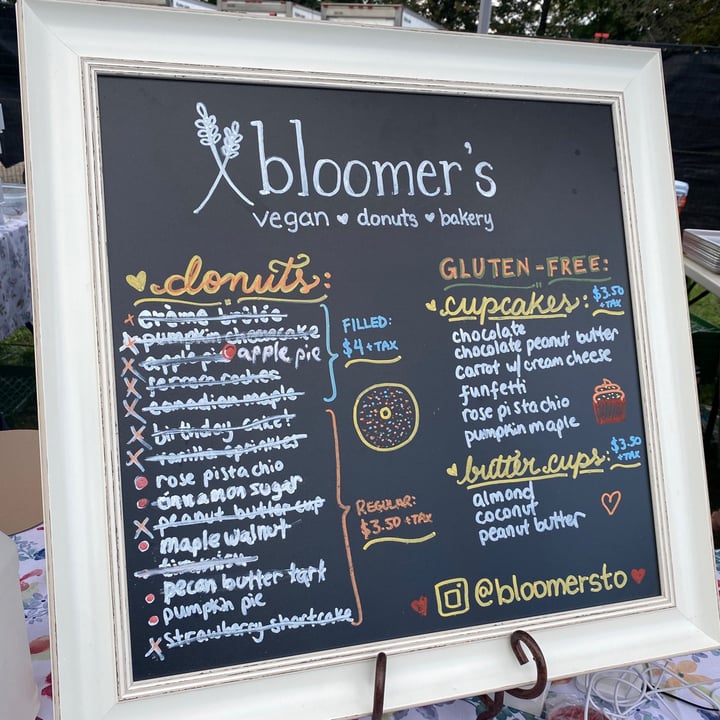 bloomer's
vegan donuts bakery
donuts:
crème brûlée
pumpkin cheesecake
apple pie
apple pie
canadian maple
birthday cake!
vanilla sprinkles
rose pistachio
cinnamon sugar
peanut butter cup
maple walnut
tiramisu
pecan butter tart
pumpkin pie
strawberry shortcake
FILLED:
$4 + TAX
REGULAR:
$3.50 + TAX
GLUTEN-FREE:
cupcakes:
$3.50
+ TAX
chocolate
chocolate peanut butter
carrot w/ cream cheese
funfetti
rose pistachio
pumpkin maple
butter cups:
$3.50
+ TAX
almond
coconut
peanut butter
@bloomersto